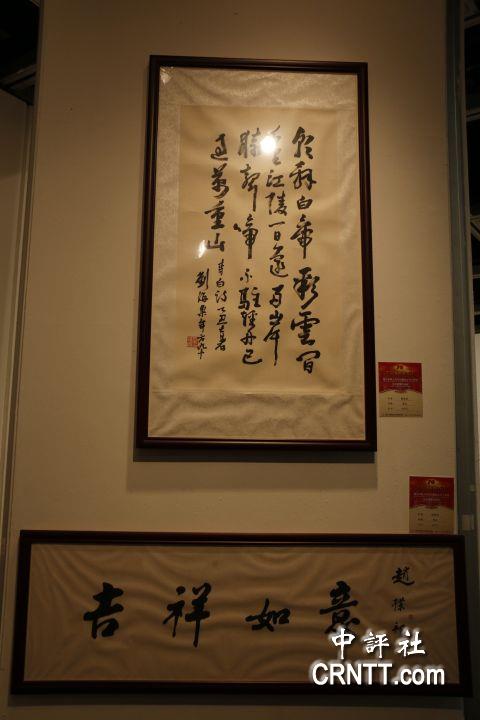 朝辭白帝彩雲間
千里江陵一日還兩岸
猿聲啼不駐輕舟已
過萬重山
李白詩乙丑大暑
劉海粟年方九十
吉祥如意
趙樸初
中評社
CRNTT.com